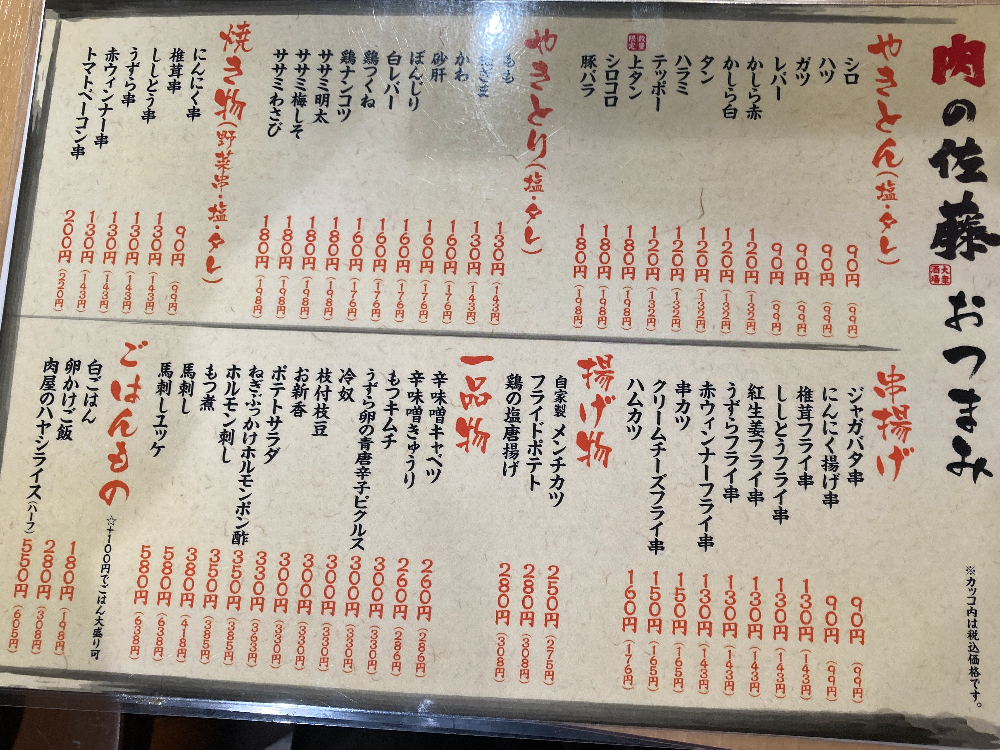 肉の佐藤 おつまみ
大衆酒場
※カッコ内は税込価格です。
やきとん(塩・タレ)
シロ 90円 (99円)
ハツ 90円 (99円)
ガツ 90円 (99円)
レバー 90円 (99円)
かしら赤 120円 (132円)
かしら白 120円 (132円)
タン 120円 (132円)
ハラミ 120円 (132円)
テッポー 120円 (132円)
数量限定 上タン 180円 (198円)
シロコロ 180円 (198円)
豚バラ 180円 (198円)
やきとり(塩・タレ)
もも 130円 (143円)
ねぎま 130円 (143円)
かわ 160円 (176円)
砂肝 160円 (176円)
ぼんじり 160円 (176円)
白レバー 160円 (176円)
鶏つくね 160円 (176円)
鶏ナンコツ 180円 (198円)
ササミ明太 180円 (198円)
ササミ梅しそ 180円 (198円)
ササミわさび 180円 (198円)
焼き物(野菜串・塩・タレ)
にんにく串 90円 (99円)
椎茸串 130円 (143円)
ししとう串 130円 (143円)
うずら串 130円 (143円)
赤ウィンナー串 130円 (143円)
トマトベーコン串 200円 (220円)
串揚げ
ジャガバタ串 90円 (99円)
にんにく揚げ串 90円 (99円)
椎茸フライ串 130円 (143円)
ししとうフライ串 130円 (143円)
紅生姜フライ串 130円 (143円)
うずらフライ串 130円 (143円)
赤ウィンナーフライ串 130円 (143円)
串カツ 150円 (165円)
クリームチーズフライ串 150円 (165円)
ハムカツ 160円 (176円)
揚げ物
自家製 メンチカツ 250円 (275円)
フライドポテト 280円 (308円)
鶏の塩唐揚げ 280円 (308円)
一品物
辛味噌キャベツ 260円 (286円)
辛味噌きゅうり 260円 (286円)
もつキムチ 300円 (330円)
うずら卵の青唐辛子ピクルス 300円 (330円)
冷奴 300円 (330円)
枝付枝豆 300円 (330円)
お新香 300円 (330円)
ポテトサラダ 330円 (363円)
ねぎぶっかけホルモンポン酢 350円 (385円)
ホルモン刺し 350円 (385円)
もつ煮 380円 (418円)
馬刺し 580円 (638円)
馬刺しユッケ 580円 (638円)
ごはんもの ☆+100円でごはん大盛り可
白ごはん 180円 (198円)
卵かけご飯 280円 (308円)
肉屋のハヤシライス(ハーフ) 550円 (605円)